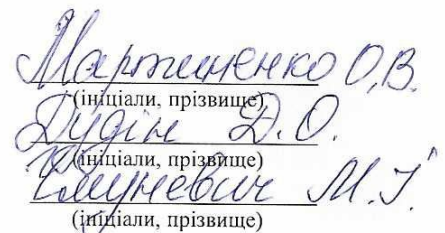 Мартиненко О.В.
(ініціали, прізвище)
Дудін Д.О.
(ініціали, прізвище)
М.І.
(ініціали, прізвище)